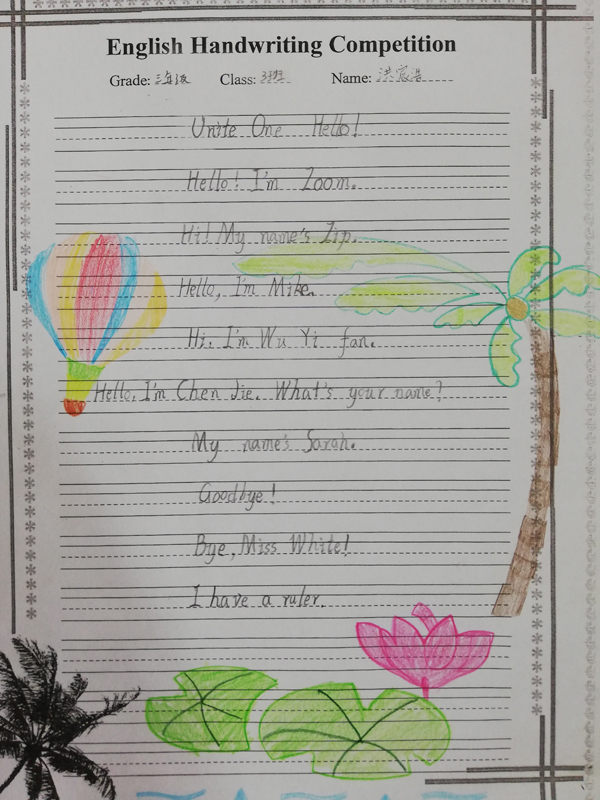 English Handwriting Competition
Grade: 三年级 Class: 3班 Name: 洪宸浩
Unite One Hello!
Hello! I'm Zoom.
Hi! My name's Zip.
Hello, I'm Mike.
Hi. I'm Wu Yi fan.
Hello. I'm Chen Jie. What's your name?
My name's Sarah.
Goodbye!
Bye, Miss White!
I have a ruler.